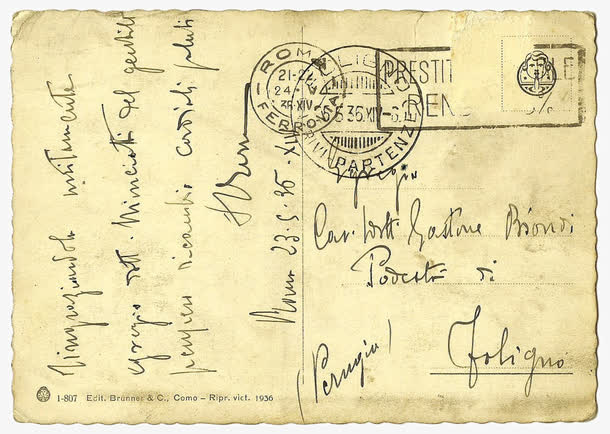 Ringraziandola unitamente
egregio dott. del gentile
pensiero ricambio cordiali saluti
Roma 23.5.36-XIV
ROMA
21-22
24
36.XIV
FERROVIA
ARRIVI PARTENZ
5 36.XIV
PRESTIT
REN
Egregio
Cav. Dott. Gastone Biondi
Podestà di
Foligno
(Perugia)
1-807 Edit. Brunner & C., Como – Ripr. viet. 1936